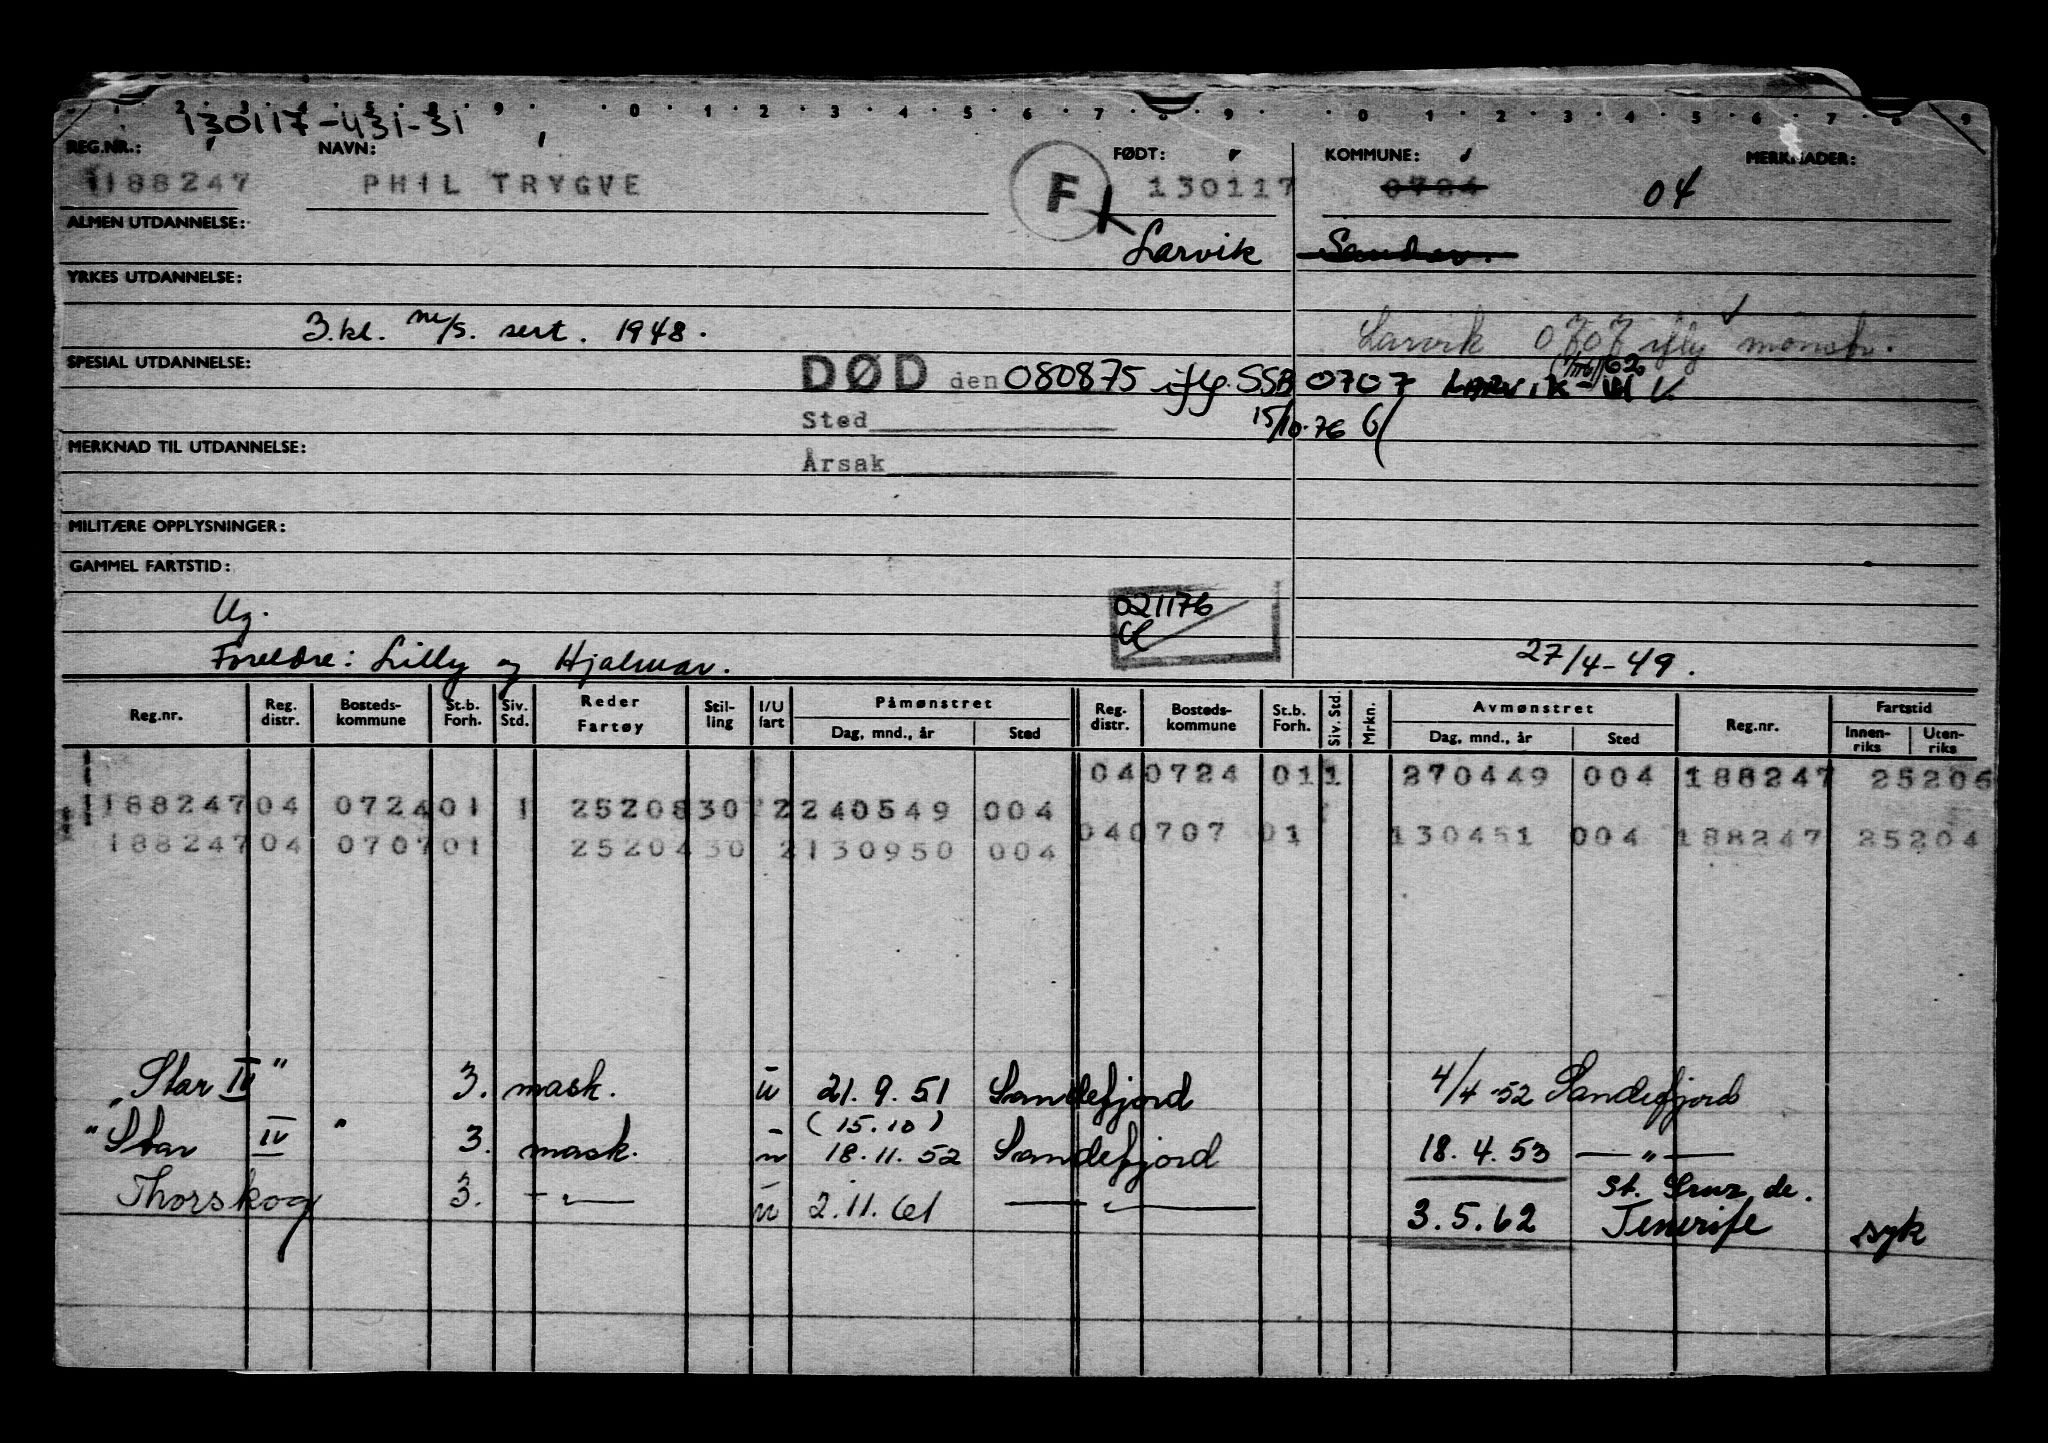 1 2 3 4 5 6 7 8 9 0 1 2 3 4 5 6 7 8 9 0 1 2 3 4 5 6 7 8 9
130117-431-31
REG.NR.: NAVN: FØDT: KOMMUNE: MERKNADER:
188247 PHIL TRYGVE F 130117 0724 04
ALMEN UTDANNELSE:
Larvik Sandar.
YRKES UTDANNELSE:
3.kl. m/s. sert. 1948. Larvik 0707 iflg mønstr.
SPESIAL UTDANNELSE:
DØD den 080875 iflg. SSB 0707 LARVIK
Sted 15/10.76
MERKNAD TIL UTDANNELSE:
Årsak
MILITÆRE OPPLYSNINGER:
GAMMEL FARTSTID:
Ug. 021176
Foreldre: Lilly og Hjalmar. 27/4-49.
Reg.nr. Reg. distr. Bosteds-kommune St.b. Forh. Siv. Std. Reder Fartøy Stil-ling I/U fart Påmønstret Dag, mnd., år Sted Reg. distr. Bosteds-kommune St.b. Forh. Siv. Std. Mrkn. Avmønstret Dag, mnd., år Sted Reg.nr. Fartstid Innen-riks Uten-riks
04 0724 01 1 270449 004 188247 25206
188247 04 0724 01 1 25208 30 2 240549 004
04 0707 01 130451 004 188247 25204
188247 04 0707 01 25204 30 2 130950 004
"Star IV" 3. mask. u 21.9.51 Sandefjord 4/4-52 Sandefjord
(15.10)
"Star IV" 3. mask. u 18.11.52 Sandefjord 18.4.53 — " —
St. Cruz de.
Thorskog 3. — " — u 2.11.61 — " — 3.5.62 Tenerife syk